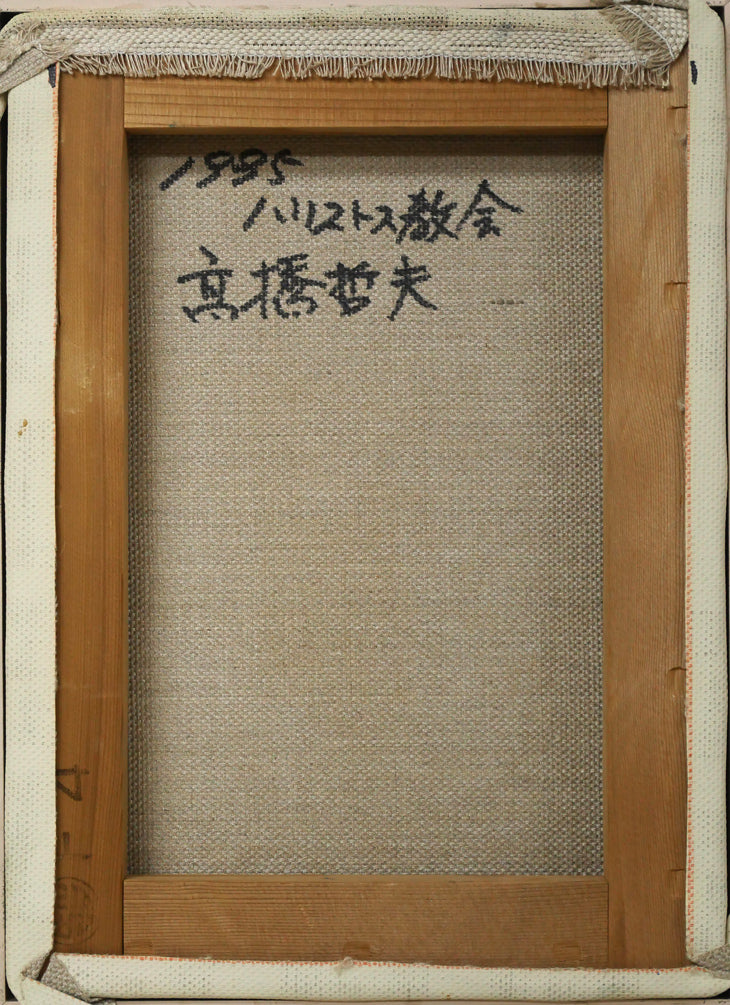 1995
ハリストス教会
高橋哲夫